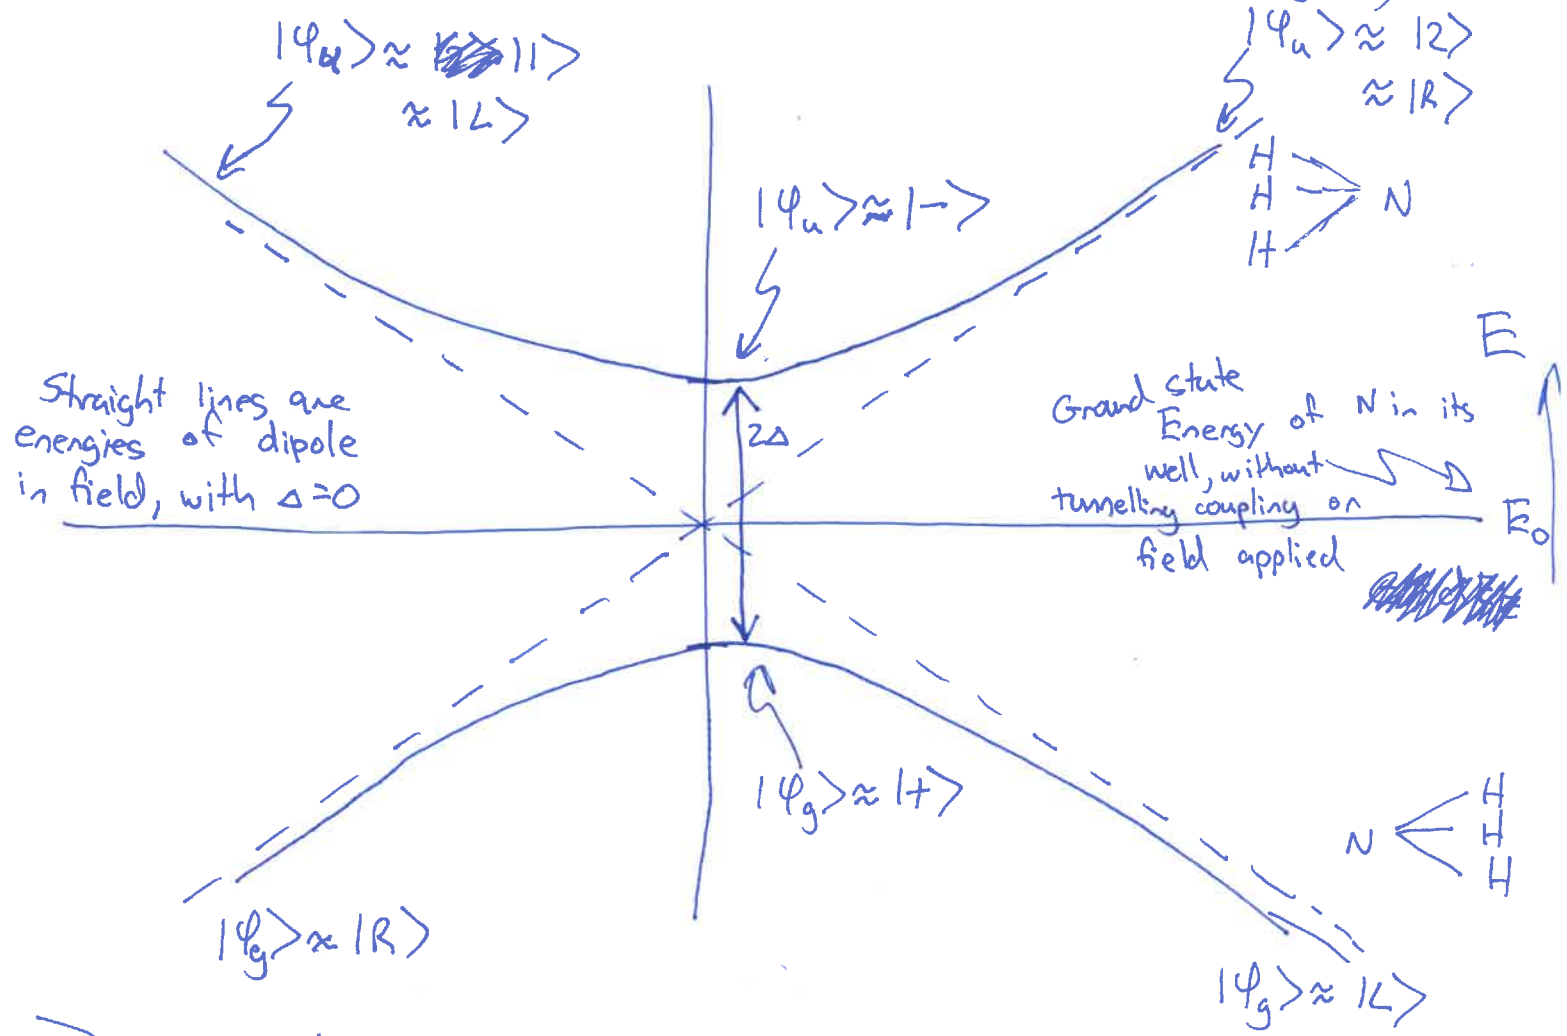 |φᵤ⟩ ≈ |1⟩
≈ |L⟩
|φᵤ⟩ ≈ |2⟩
≈ |R⟩
H
H N
H
|φᵤ⟩ ≈ |−⟩
E
Straight lines are
energies of dipole
in field, with Δ=0
2Δ
Ground state
Energy of N in its
well, without
tunnelling coupling or
field applied
E₀
|φg⟩ ≈ |+⟩
H
N H
H
|φg⟩ ≈ |R⟩
|φg⟩ ≈ |L⟩